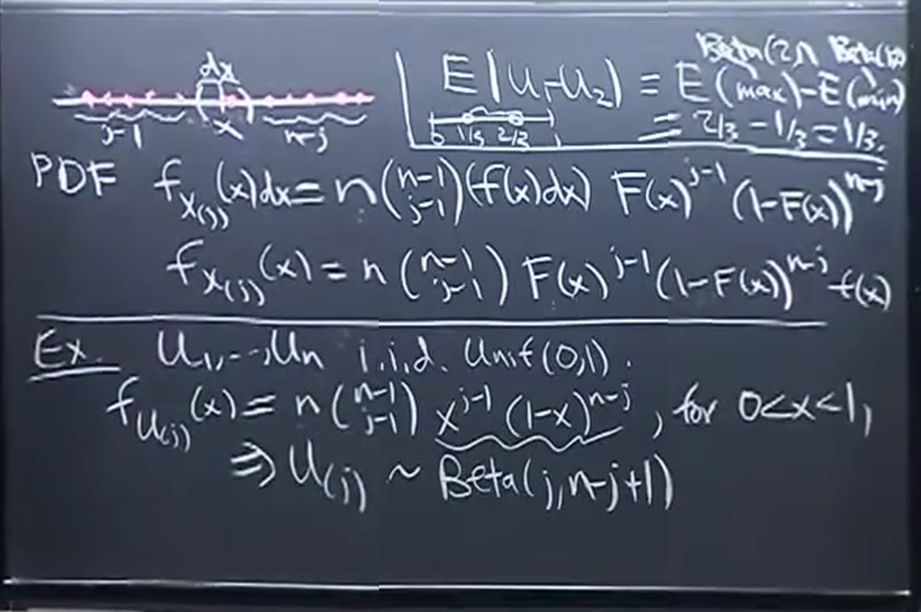 dx
j-1 x n-j
Beta(2,1) Beta(1,2)
E|U₁-U₂| = E(max)-E(min)
0 1/3 2/3 1
= 2/3 - 1/3 = 1/3.
PDF f_{X_{(j)}}(x)dx = n\binom{n-1}{j-1}(f(x)dx) F(x)^{j-1} (1-F(x))^{n-j}
f_{X_{(j)}}(x) = n \binom{n-1}{j-1} F(x)^{j-1} (1-F(x))^{n-j} f(x)
Ex. U₁,...,Uₙ i.i.d. Unif(0,1).
f_{U_{(j)}}(x) = n \binom{n-1}{j-1} x^{j-1} (1-x)^{n-j}, for 0<x<1,
⇒ U_{(j)} ~ Beta(j, n-j+1)